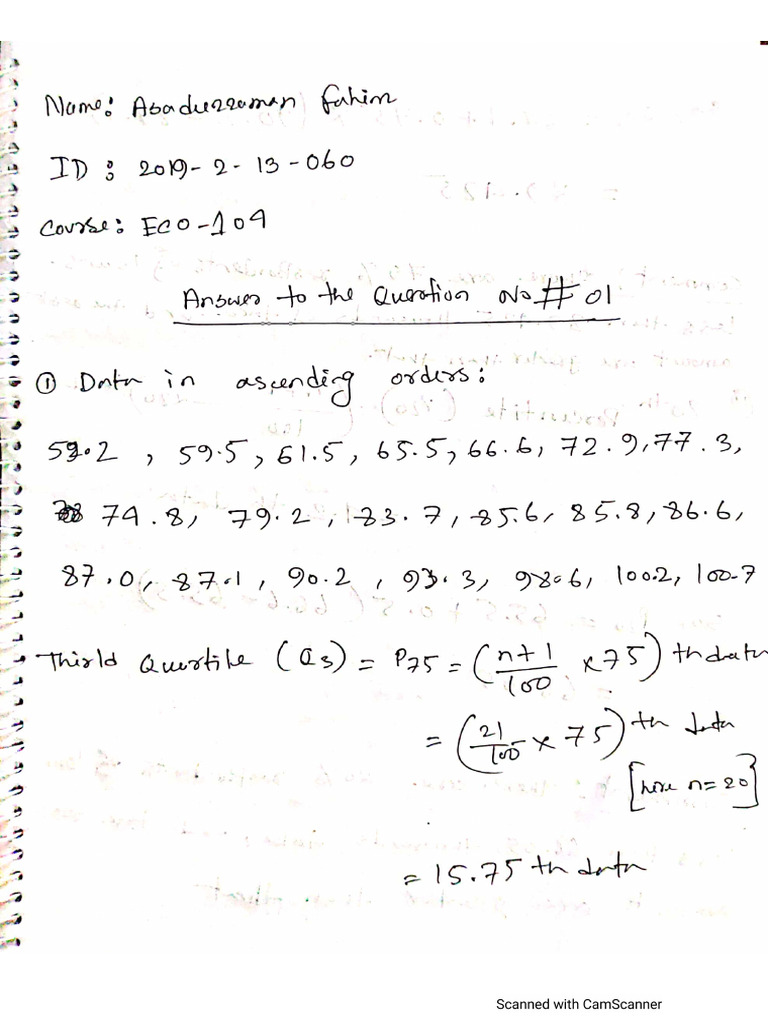 Name: Asaduzzaman Fahim
ID : 2019-2-13-060
Course: ECO-104
Answer to the Question No # 01
① Data in ascending orders:
59.2 , 59.5, 61.5, 65.5, 66.6, 72.9, 77.3,
74.8, 79.2, 83.7, 85.6, 85.8, 86.6,
87.0, 87.1, 90.2, 93.3, 98.6, 100.2, 100.7
Thirld Quertile (Q3) = P75 = (n+1/100 × 75) th data
= (21/100 × 75) th data
[here n=20]
= 15.75 th data
Scanned with CamScanner